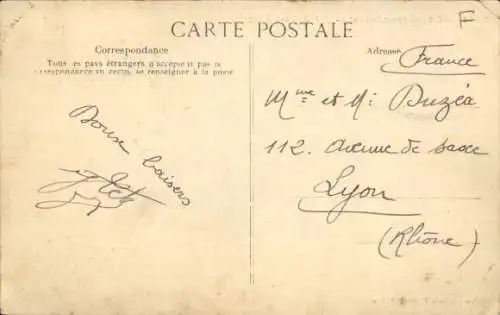 F
CARTE POSTALE
Correspondance
Tous les pays étrangers n'acceptent pas la
correspondance au recto, se renseigner à la poste
Adresse
France
Mme et Mr Duzéa
112. Avenue de Saxe
Lyon
(Rhône)
Doux baisers